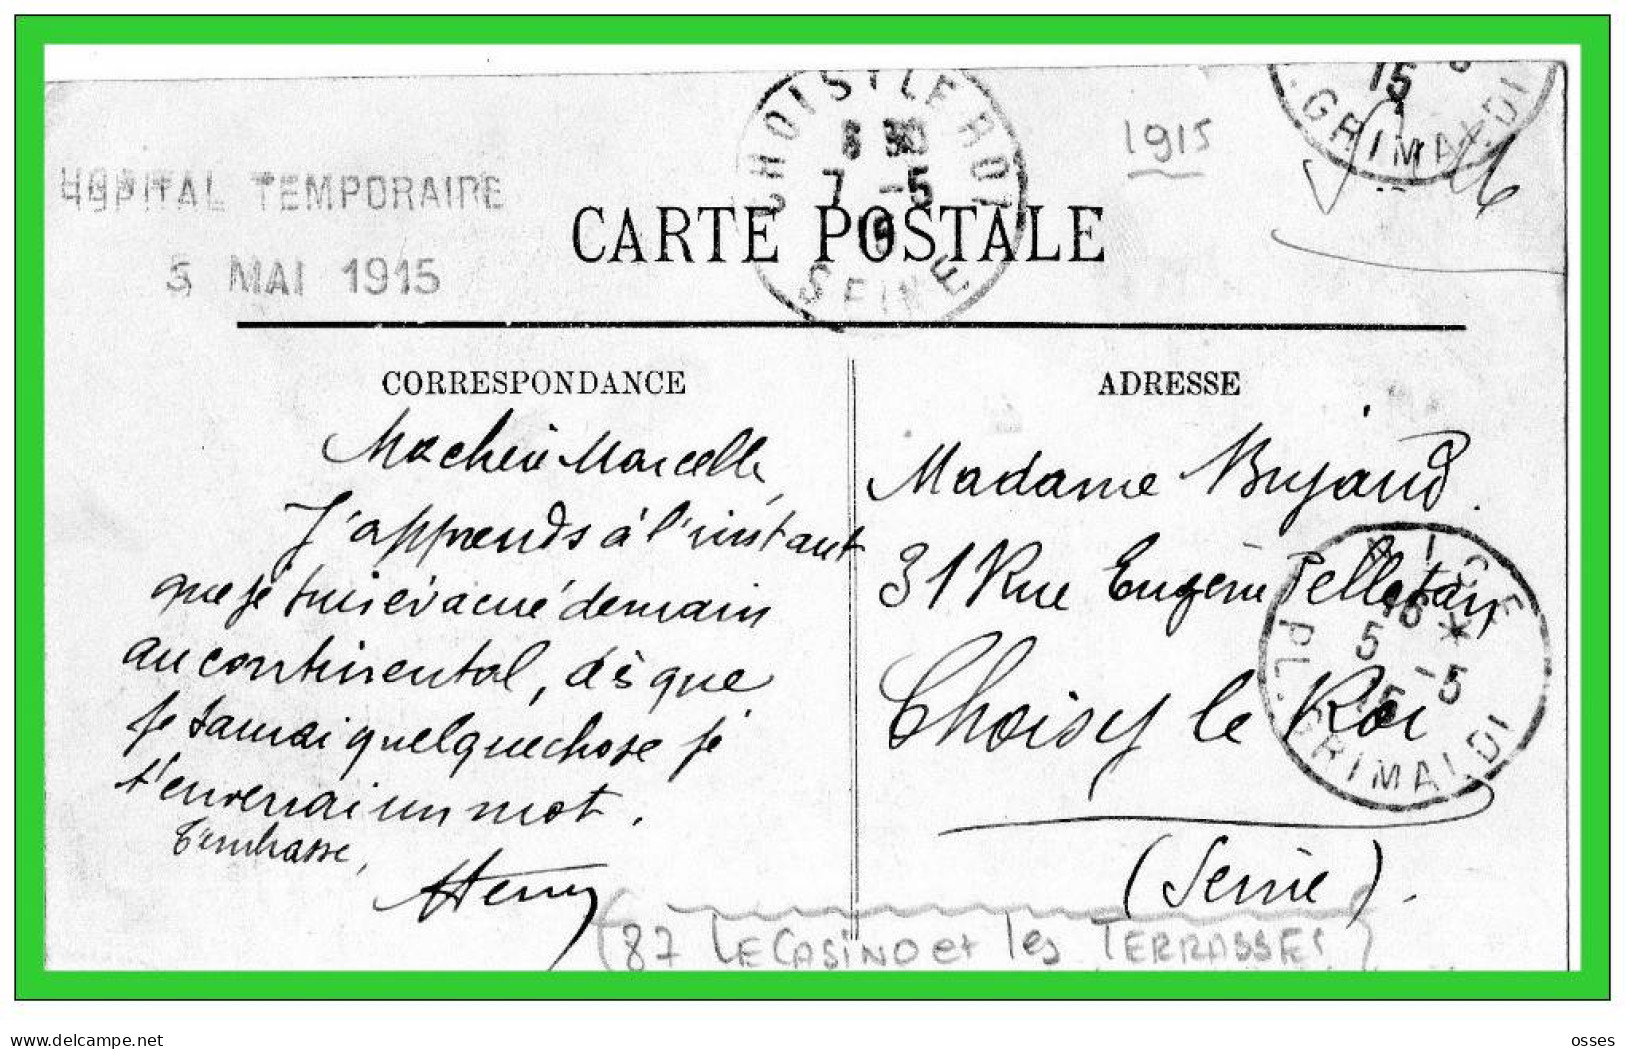 HOPITAL TEMPORAIRE
5 MAI 1915
CHOISY LE ROI
8 30
7 -5
15
SEINE
1915
15
GRIMALDI
CARTE POSTALE
CORRESPONDANCE
Ma chérie Marcelle,
J'apprends à l'instant
que je suis évacué demain
au continental, dès que
je saurai quelque chose je
t'enverrai un mot.
T'embrasse,
Henry
ADRESSE
Madame Bujard
31 Rue Eugène Pelletan
Choisy le Roi
(Seine).
NICE
16 *
5 -5
15
PL. GRIMALDI
(87 LE CASINO et les TERRASSES)
delcampe.net
osses